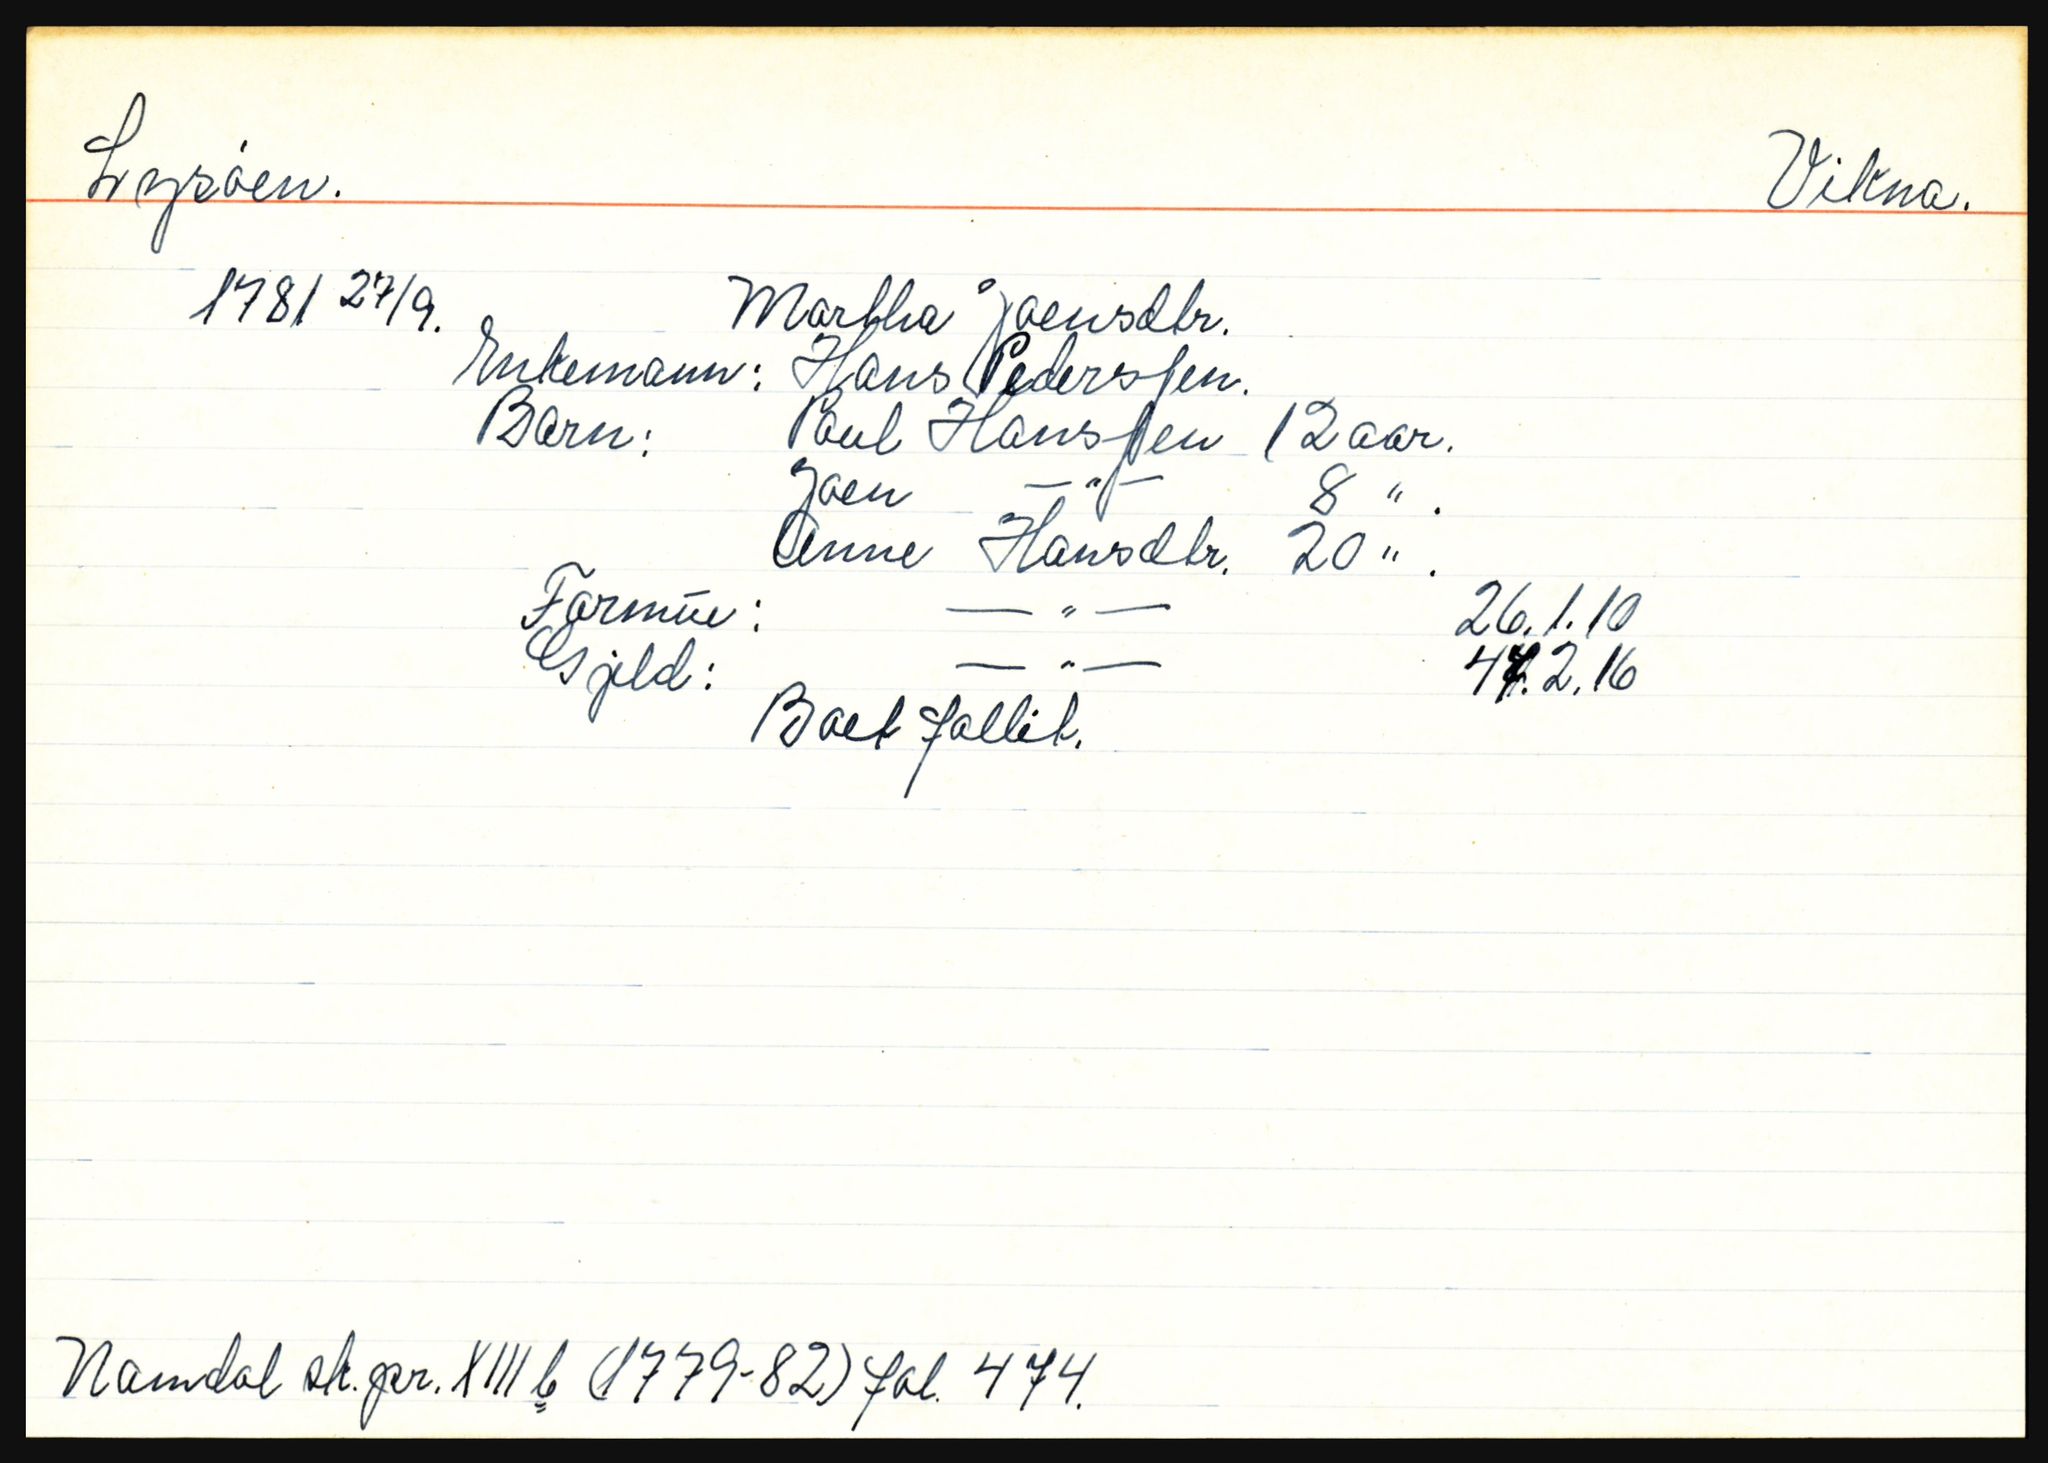 Lysøen. Vikna.
1781 27/9. Martha Joensdtr.
Enkemann: Hans Pederssen.
Barn: Paul Hanssen 12 aar.
Joen —"— 8 ".
Anne Hansdtr. 20 ".
Formūe: —"— 26.1.10
Gjeld: —"— 2.16
Boet fallit.
Namdal sk.pr. XIII b (1779-82) fol. 474.